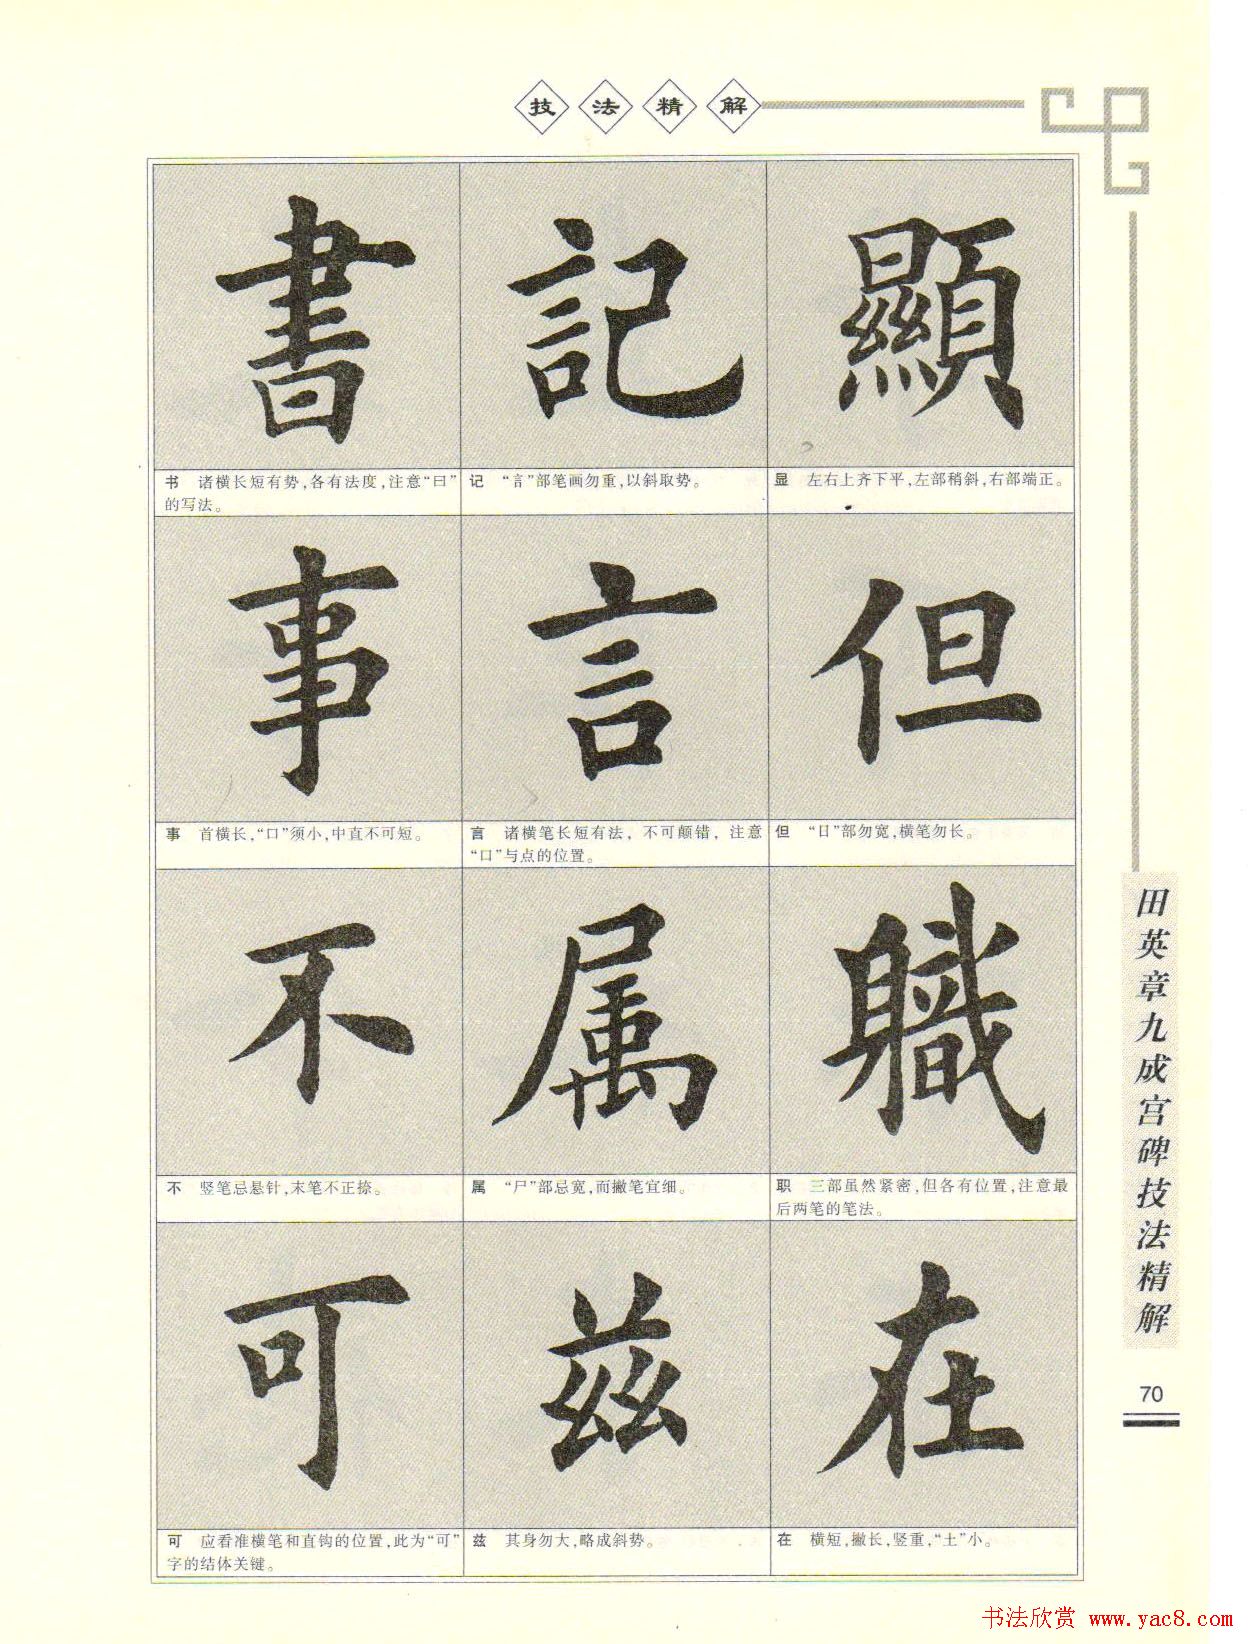 技法精解
書
記
顯
书 诸横长短有势,各有法度,注意“曰”
的写法。
记 “言”部笔画勿重,以斜取势。
显 左右上齐下平,左部稍斜,右部端正。
事
言
但
事 首横长,“口”须小,中直不可短。
言 诸横笔长短有法，不可颠错，注意
“口”与点的位置。
但 “日”部勿宽,横笔勿长。
不
属
職
不 竖笔忌悬针,末笔不正捺。
属 “尸”部忌宽,而撇笔宜细。
职 三部虽然紧密,但各有位置,注意最
后两笔的笔法。
可
兹
在
可 应看准横笔和直钩的位置,此为“可”
字的结体关键。
兹 其身勿大,略成斜势。
在 横短,撇长,竖重,“土”小。
田英章九成宫碑技法精解
70
书法欣赏 www.yac8.com